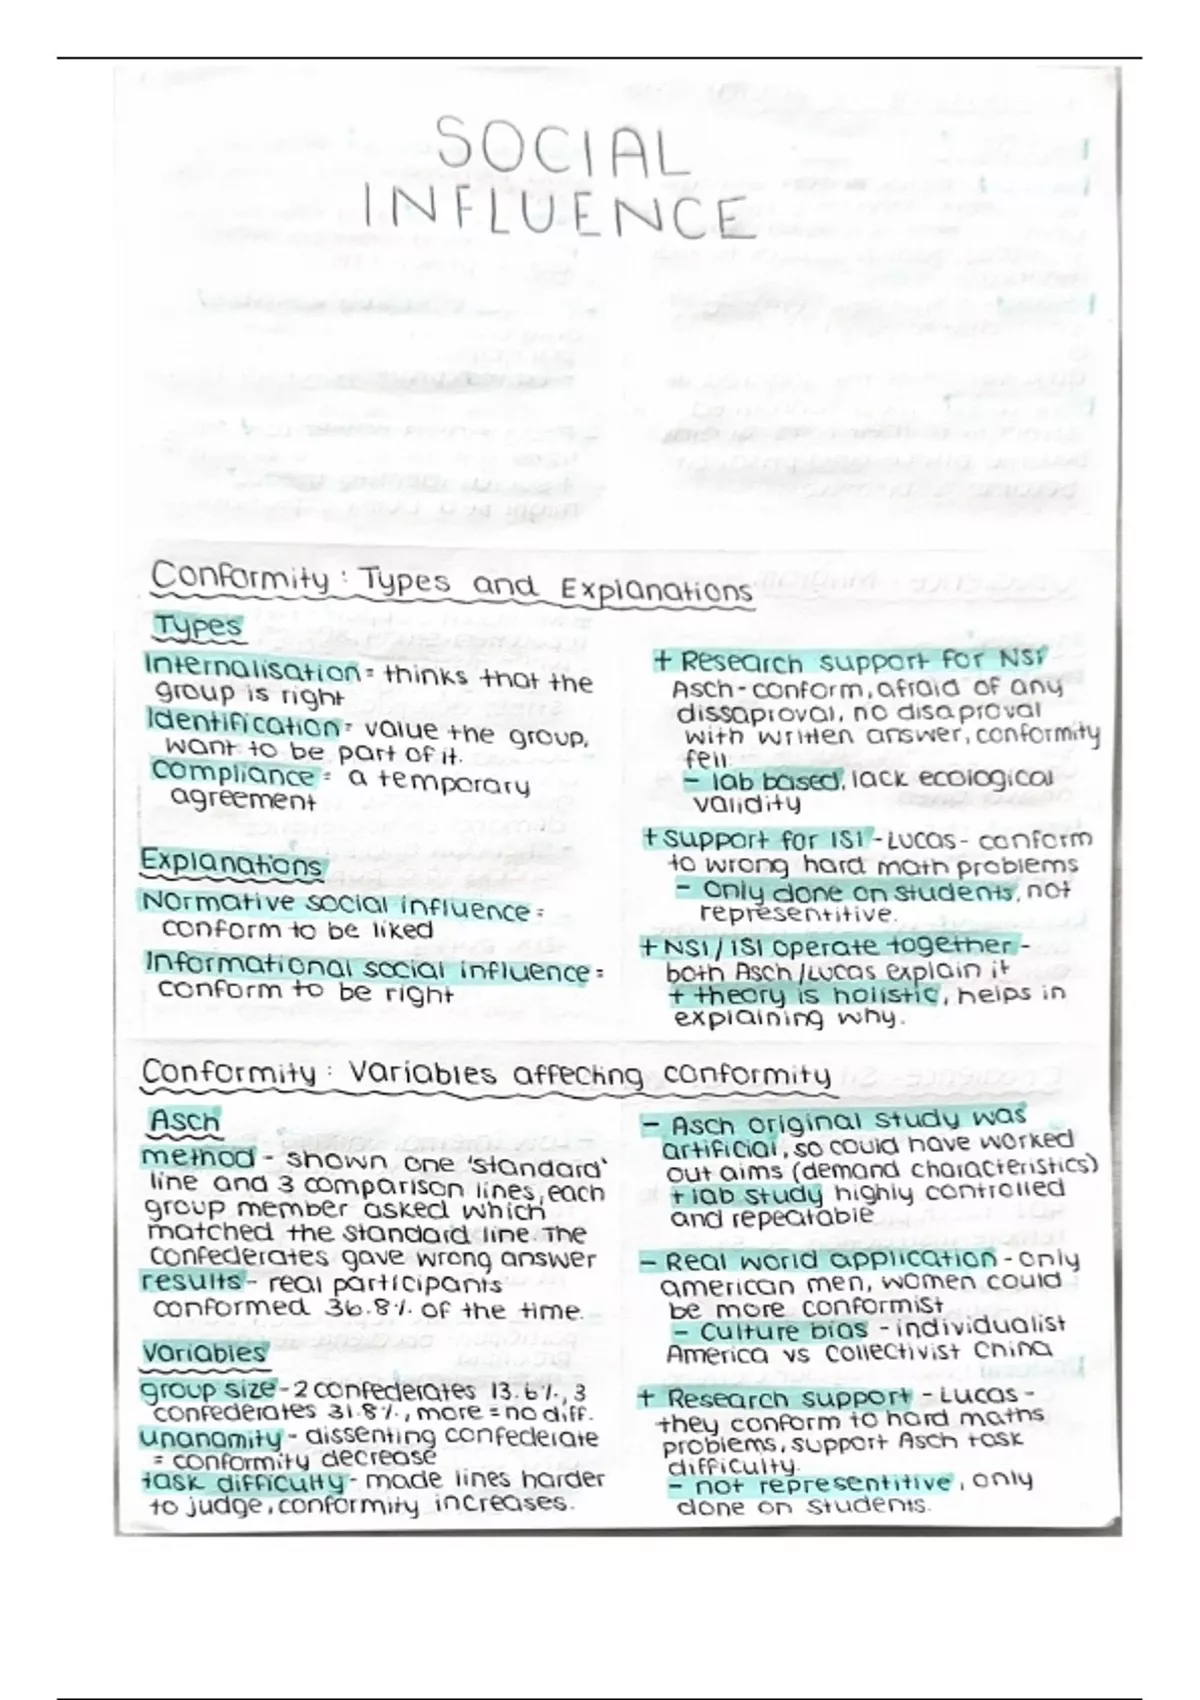 SOCIAL
INFLUENCE
Conformity : Types and Explanations
Types
Internalisation = thinks that the
group is right
Identification = value the group,
want to be part of it.
Compliance = a temporary
agreement
Explanations
Normative social influence =
conform to be liked
Informational social influence =
conform to be right
+ Research support for NSI
Asch - conform, afraid of any
dissaproval, no disaproval
with written answer, conformity
fell.
- lab based, lack ecological
validity
+ Support for ISI - Lucas - conform
to wrong hard math problems
- only done on students, not
representitive.
+ NSI / ISI operate together -
both Asch / Lucas explain it
+ theory is holistic, helps in
explaining why.
Conformity : Variables affecting conformity
Asch
method - shown one 'standard'
line and 3 comparison lines, each
group member asked which
matched the standard line. The
confederates gave wrong answer
results - real participants
conformed 36.8% of the time.
Variables
group size - 2 confederates 13.6%, 3
confederates 31.8%, more = no diff.
unanamity - dissenting confederate
= conformity decrease
task difficulty - made lines harder
to judge, conformity increases.
- Asch original study was
artificial, so could have worked
out aims (demand characteristics)
+ lab study highly controlled
and repeatable
- Real world application - only
american men, women could
be more conformist
- Culture bias - individualist
America vs collectivist China
+ Research support - Lucas -
they conform to hard maths
problems, support Asch task
difficulty.
- not representitive, only
done on students.